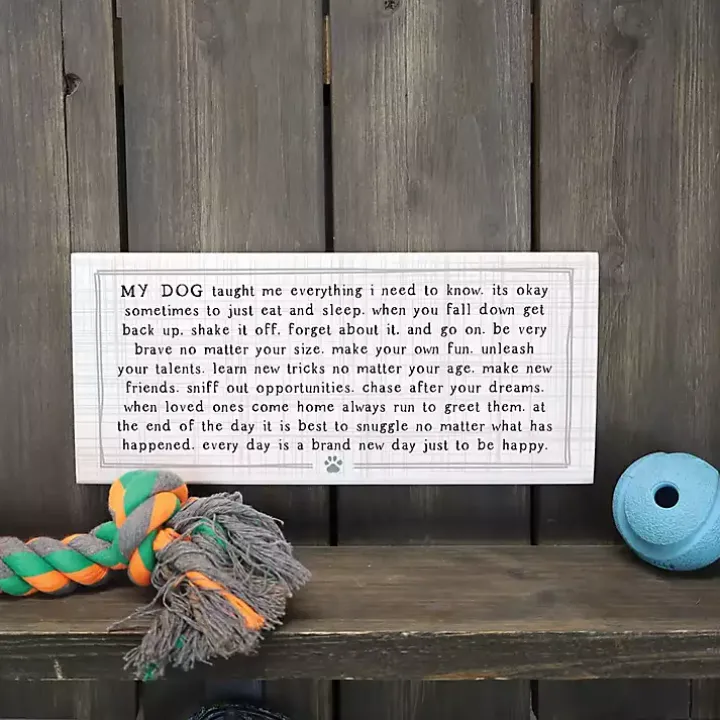 MY DOG taught me everything i need to know. its okay
sometimes to just eat and sleep. when you fall down get
back up. shake it off. forget about it. and go on. be very
brave no matter your size. make your own fun. unleash
your talents. learn new tricks no matter your age. make new
friends. sniff out opportunities. chase after your dreams.
when loved ones come home always run to greet them. at
the end of the day it is best to snuggle no matter what has
happened. every day is a brand new day just to be happy.